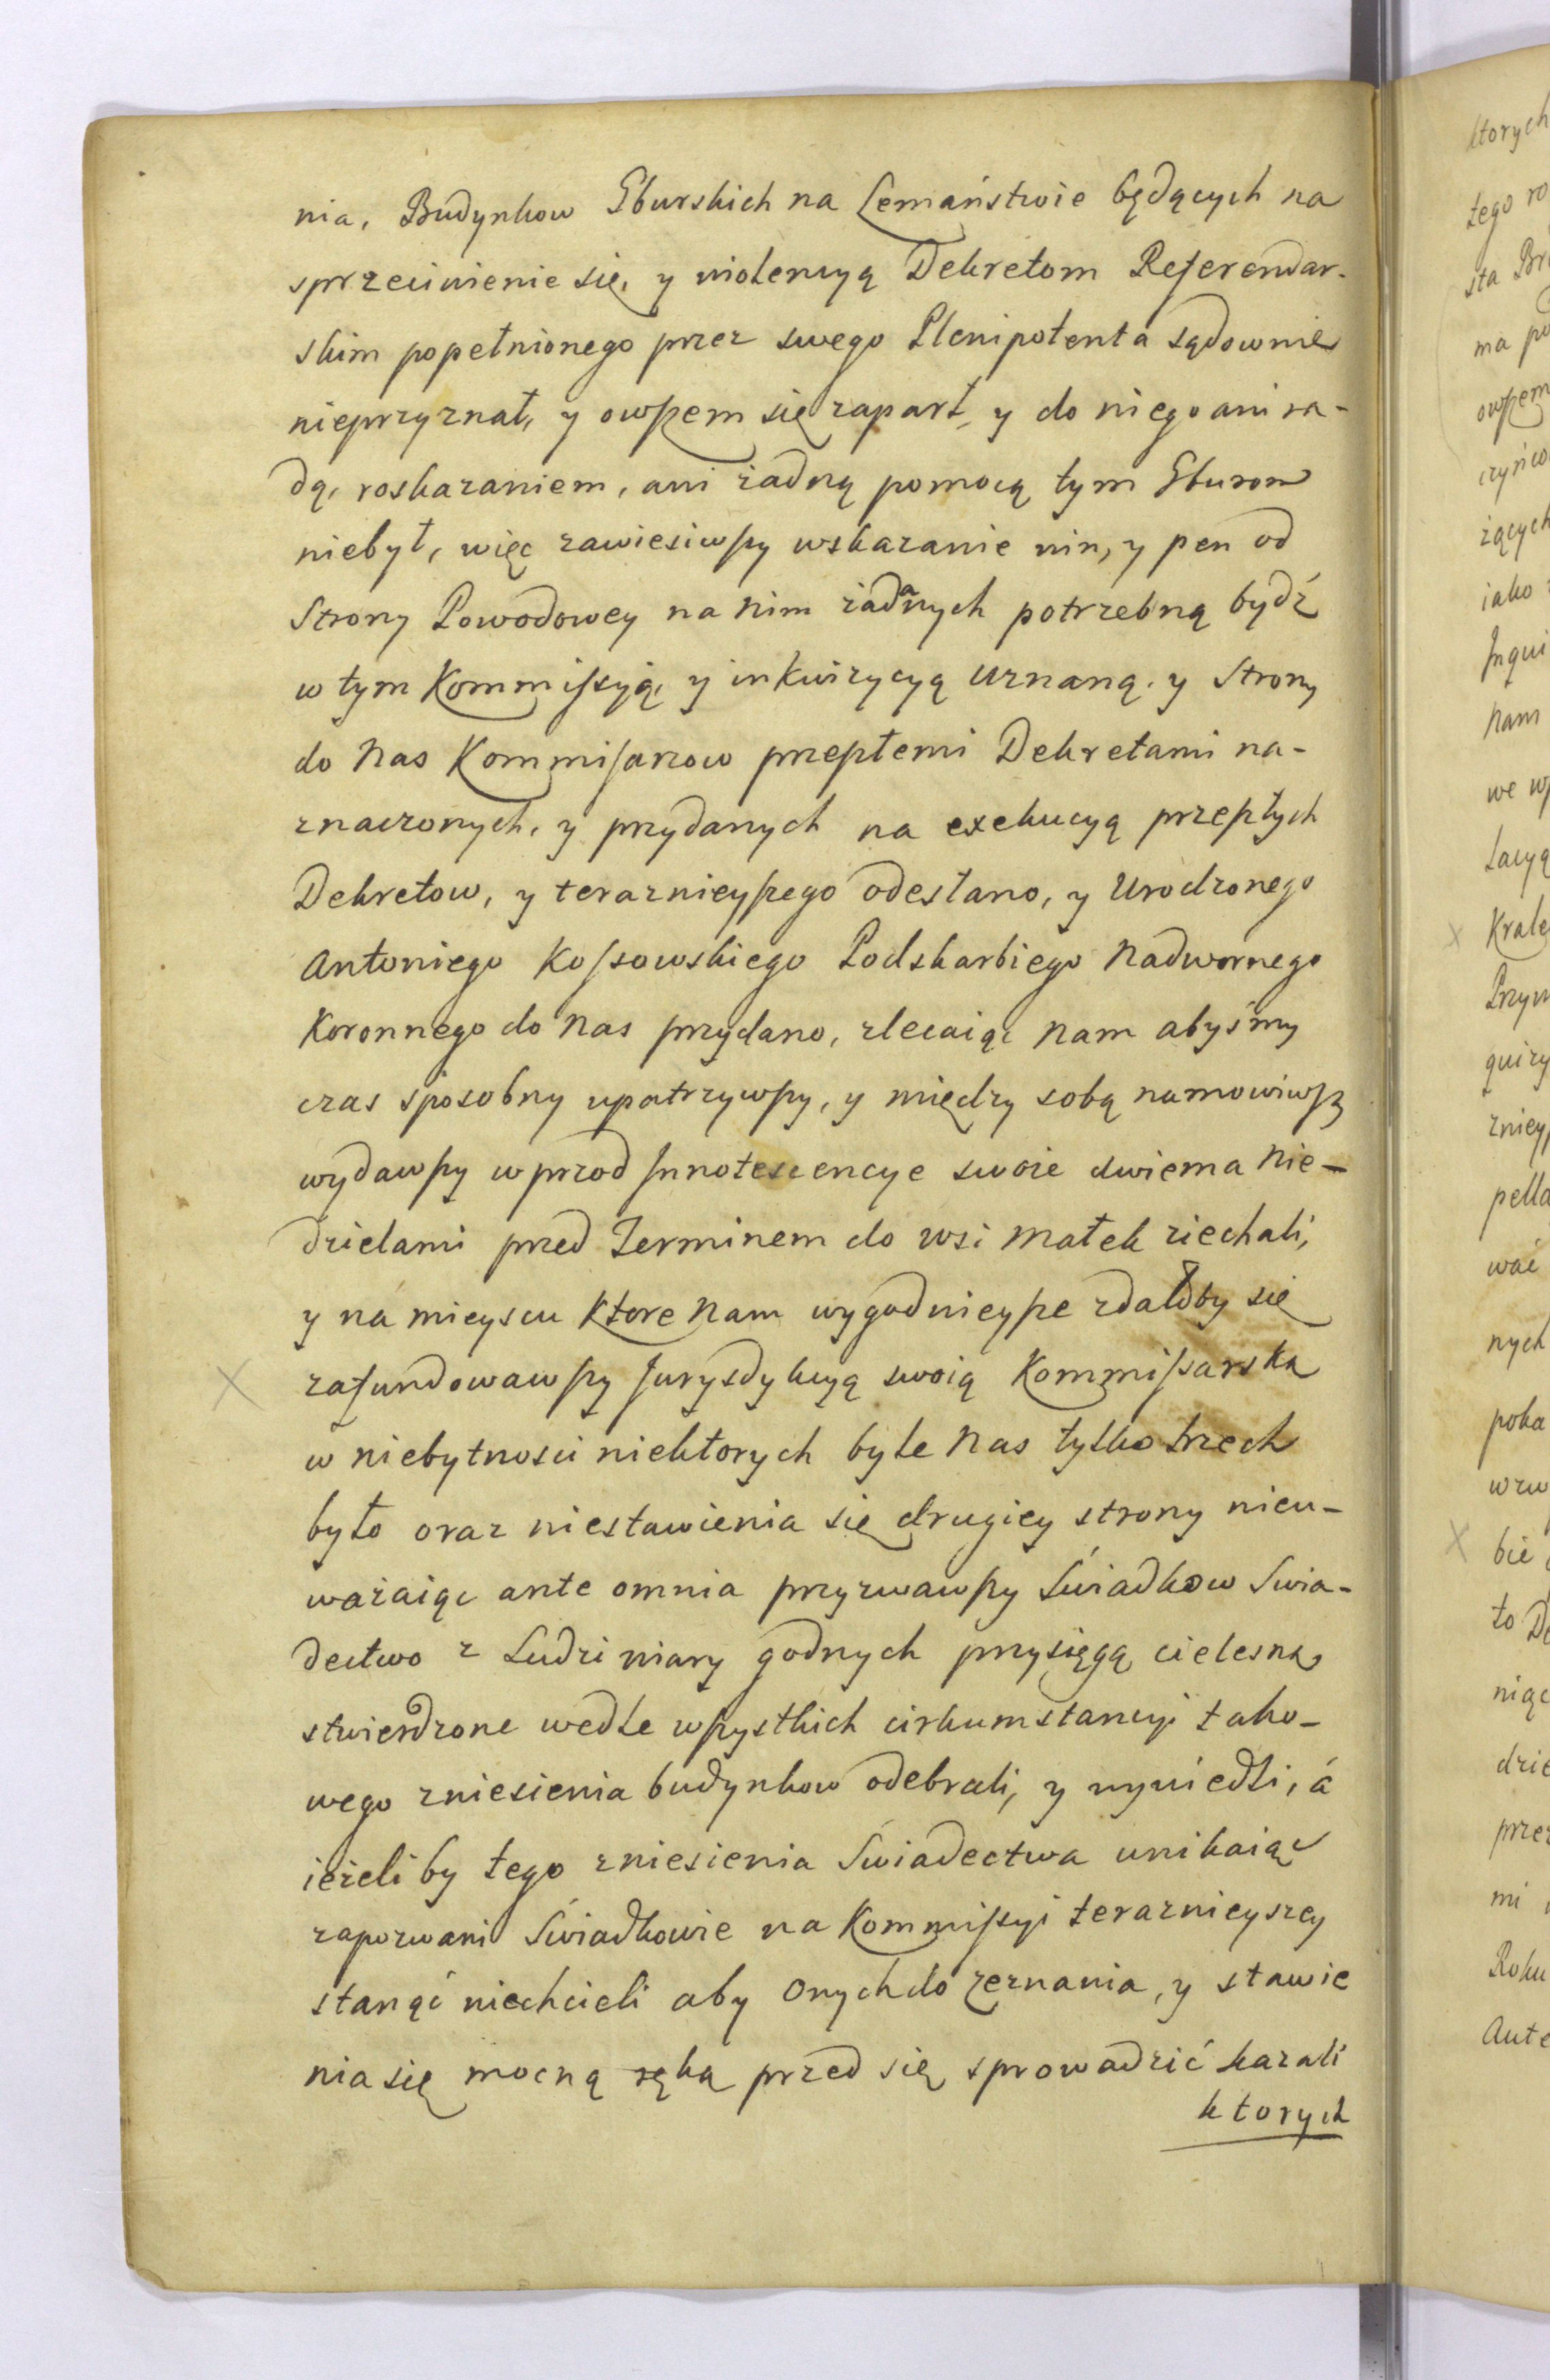 nia, Budynkow Gburskich na Lemaństwie będących na
sprzeciwienie się, y violencyą Dekretom Referendar-
skim popełnionego przez swego Plenipotenta sądownie
nieprzyznał, y owszem się zaparł, y do niego ani ra-
dą, roskazaniem, ani żadną pomocą tym Gburom
niebył, więc zawiesiwszy wskazanie win, y pen od
Strony Powodowey na nim żadanych potrzebną bydź
w tym Kommissyją, y inkwizycyą uznaną. y Strony
do Nas Kommisarzow przeszłemi Dekretami na-
znaczonych, y przydanych na exekucyą przeszłych
Dekretow, y teraznieyszego odesłano, y Urodzonego
Antoniego Kossowskiego Podskarbiego Nadwornego
Koronnego do Nas przydano, zlecaiąc Nam abyśmy
czas sposobny upatrzywszy, y między sobą namowiwszy
wydawszy wprzod Innotescencye swoie dwiema Nie-
dzielami przed Terminem do wsi Małek ziechali,
y na mieyscu Ktore Nam wygodnieysze zdałoby się
zafundowawszy Jurysdykcyą swoią Kommissarską
w niebytnosci niektorych byle Nas tylko trzech
było oraz niestawienia się drugiey strony nieu-
ważaiąc ante omnia przyzwawszy Świadkow Swia-
dectwo z Ludzi wiary godnych przysięgą cielesną
stwierdzone wedle wszystkich cirkumstancyi tako-
wego zniesienia budynkow odebrali, y wywiedli, á
ieżeliby tego zniesienia Świadectwa unikaiąc
zapozwani Świadkowie na Kommissyi teraznieyszey
stanąć niechcieli aby Onych do zeznania, y stawie
nia się mocną ręką przed się sprowadzić kazali
ktorych